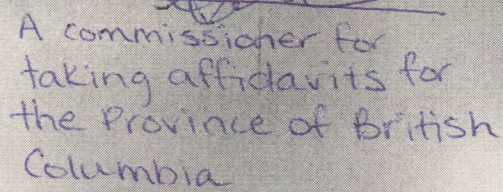 A commissioner for
taking affidavits for
the Province of British
Columbia